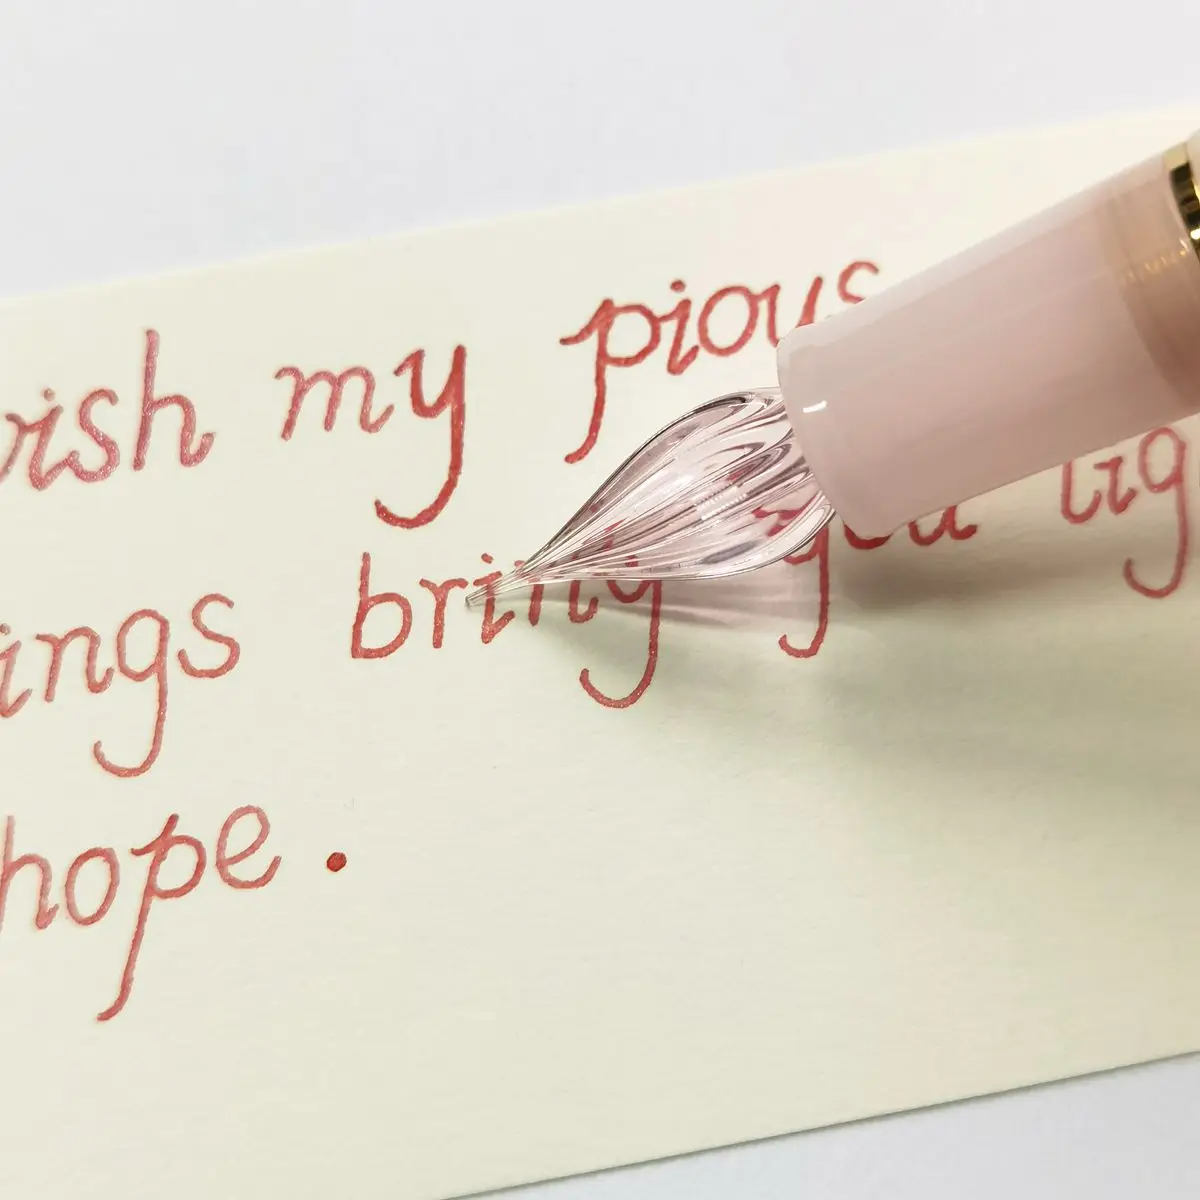 wish my pious
ings bring you lig
hope.